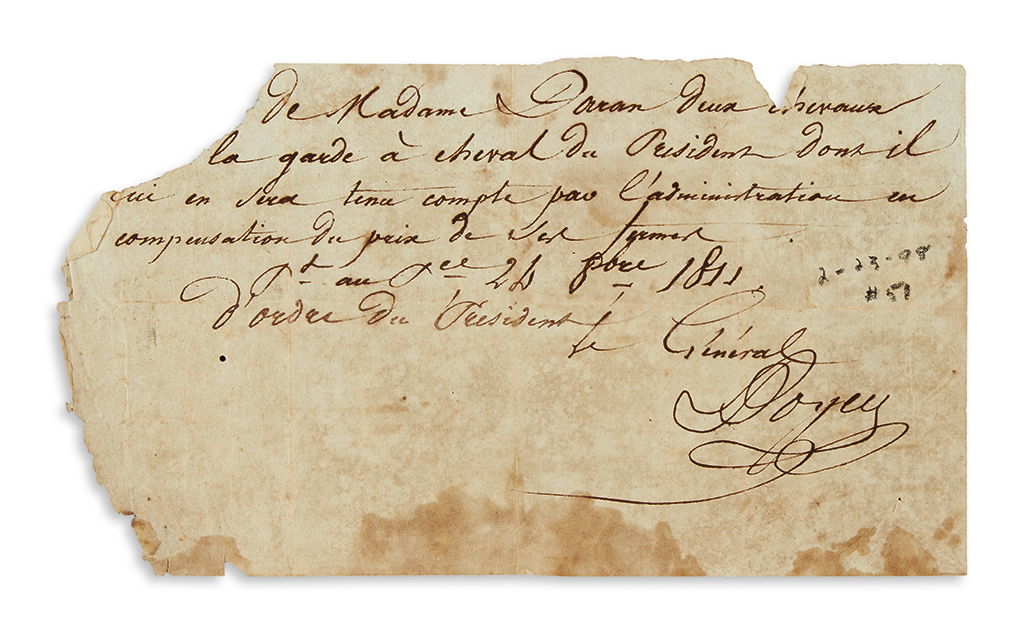 de Madame Doran deux chevaux
la garde à cheval du President dont il
qui en sera tenu compte par l'administration en
compensation du prix de ses fermes
Pt au Pce 24 8bre 1811.
d'ordre du Président
le Général
Boyer
2-23-98
#51